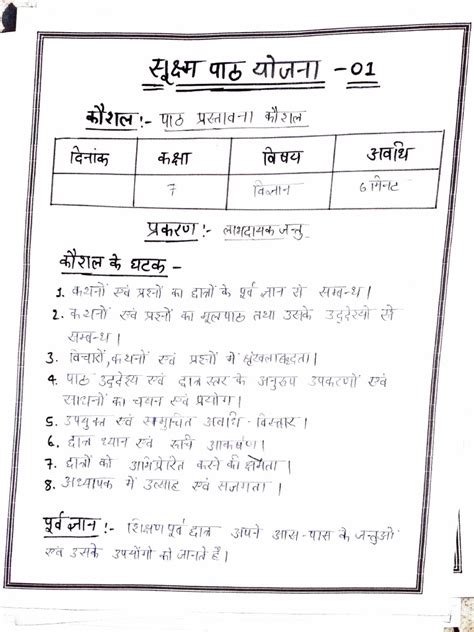 सूक्ष्म पाठ योजना - 01
कौशल :- पाठ प्रस्तावना कौशल
दिनांक कक्षा विषय अवधि
7 विज्ञान 6 मिनट
प्रकरण :- लाभदायक जन्तु
कौशल के घटक -
1. कथनों एवं प्रश्नों का छात्रों के पूर्व ज्ञान से सम्बन्ध।
2. कथनों एवं प्रश्नों का मूलपाठ तथा उसके उद्देश्यों से
सम्बन्ध।
3. विचारों, कथनों एवं प्रश्नों में श्रृंखलाबद्धता।
4. पाठ उद्देश्य एवं छात्र स्तर के अनुरूप उपकरणों एवं
साधनों का चयन एवं प्रयोग।
5. उपयुक्त एवं समुचित अवधि-विस्तार।
6. छात्र ध्यान एवं रूचि आकर्षण।
7. छात्रों को अभिप्रेरित करने की क्षमता।
8. अध्यापक में उत्साह एवं सजगता।
पूर्व ज्ञान :- शिक्षण पूर्व छात्र अपने आस-पास के जन्तुओं
एवं उसके उपयोगों को जानते हैं।